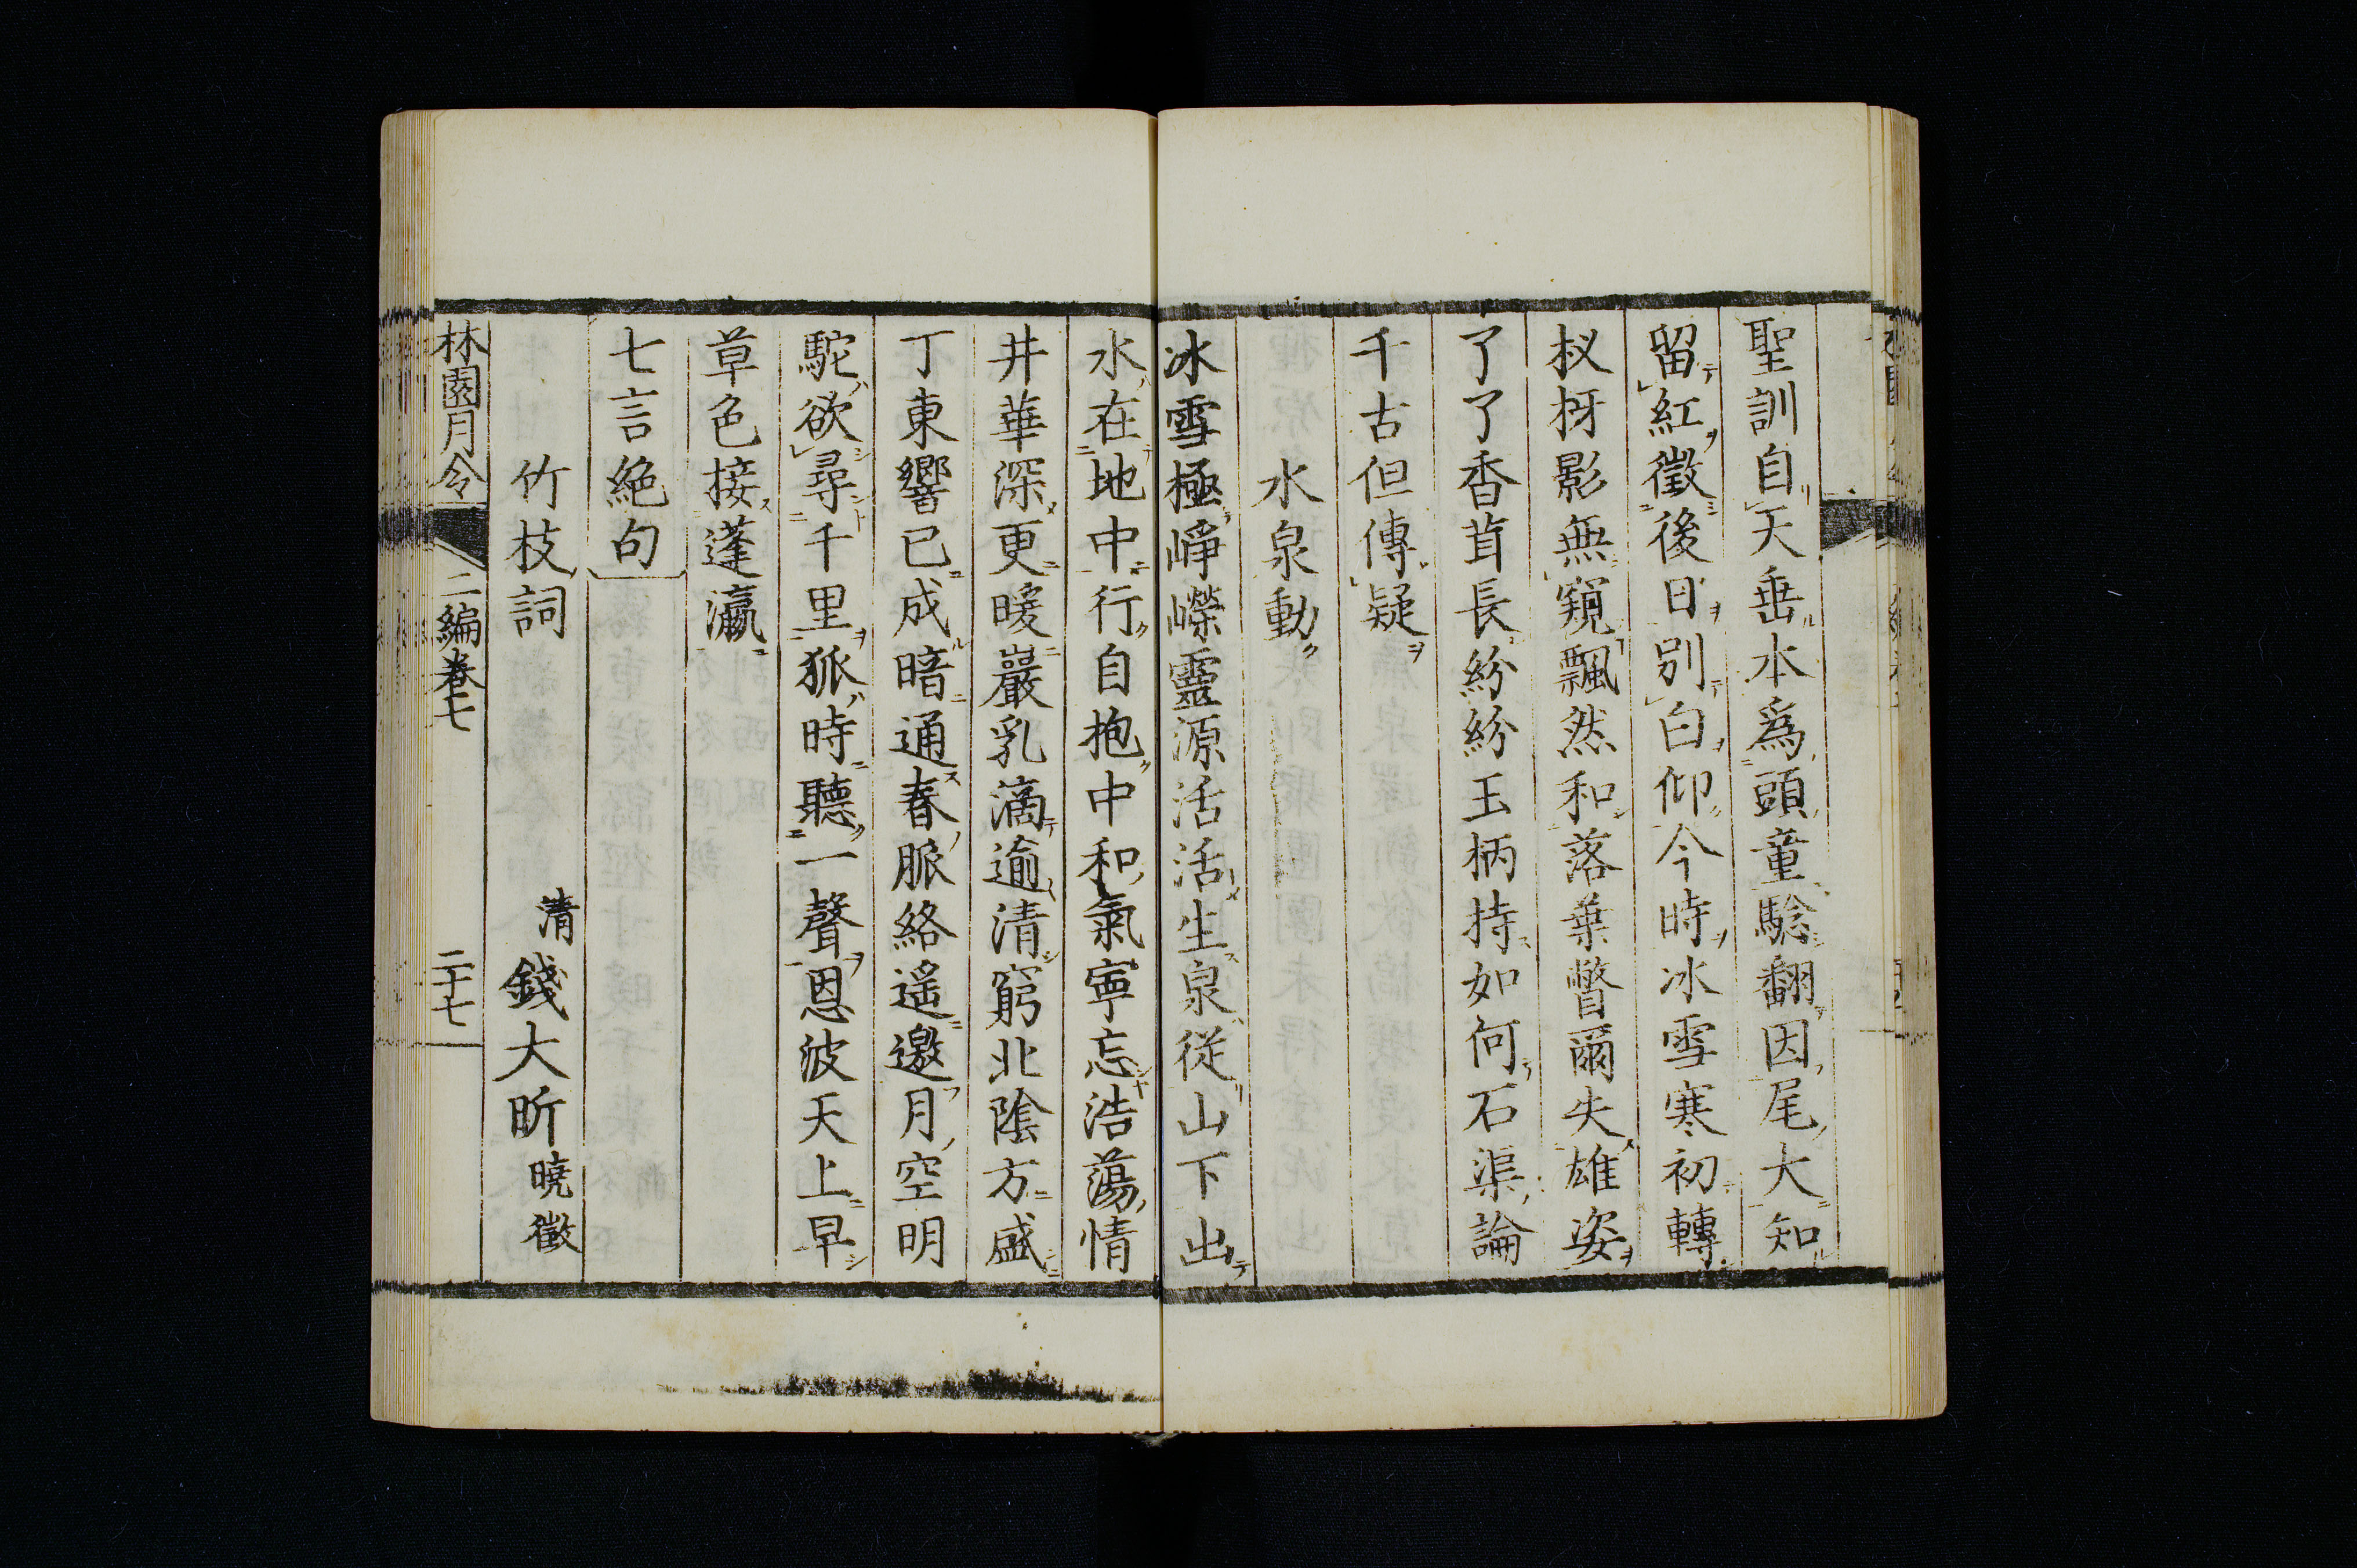 聖訓自天垂本為頭童驗翻因尾大知
留紅徵後日別白仰今時冰雪寒初轉
杈枒影無窺飄然和落葉瞥爾失雄姿
了了香茸長紛紛玉柄持如何石渠論
千古但傳疑
水泉動
冰雪極崢嶸靈源活活生泉從山下出
水在地中行自抱中和氣寧忘浩蕩情
井華深更暖巖乳滴逾清窮北陰方盛
丁東響已成暗通春脈絡遙邀月空明
駝欲尋千里狐時聽一聲恩波天上早
草色接蓬瀛
七言絕句
竹枝詞 清 錢大昕 曉徵
林園月令 二編卷七 二十七